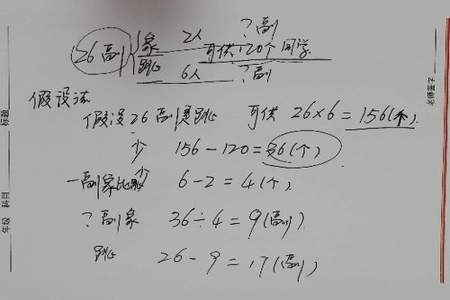 26副 象 2人 ?副
可供120个同学
跳 6人 ?副
假设法
假设26副是跳 可供 26×6=156(个)
少 156-120=36(个)
一副象比跳少 6-2=4(个)
?副象 36÷4=9(副)
跳 26-9=17(副)
标题
年级 科目